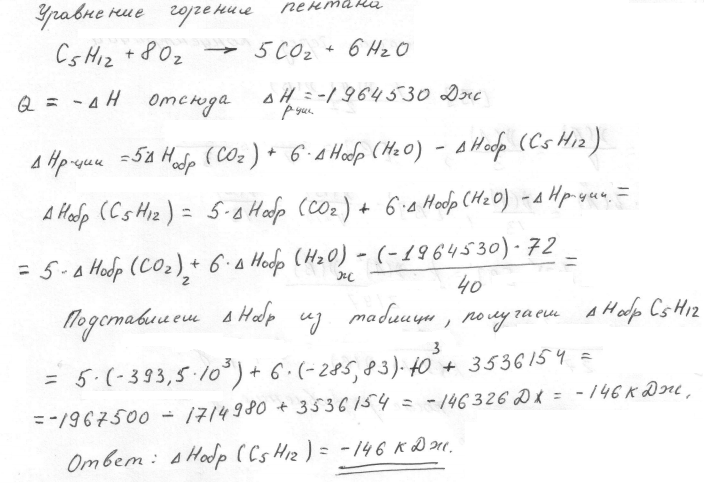 Уравнение горения пентана
C5H12 + 8O2 → 5CO2 + 6H2O
Q = -ΔH отсюда ΔH р-ции = -1964530 Дж
ΔHр-ции = 5ΔHобр(CO2) + 6·ΔHобр(H2O) - ΔHобр(C5H12)
ΔHобр(C5H12) = 5·ΔHобр(CO2) + 6·ΔHобр(H2O) - ΔHр-ции. =
= 5·ΔHобр(CO2)г + 6·ΔHобр(H2O)ж - (-1964530)·72 / 40 =
Подставляем ΔHобр из таблицы, получаем ΔHобр C5H12
= 5·(-393,5·10³) + 6·(-285,83)·10³ + 3536154 =
= -1967500 - 1714980 + 3536154 = -146326 Дж = -146 кДж.
Ответ: ΔHобр(C5H12) = -146 кДж.